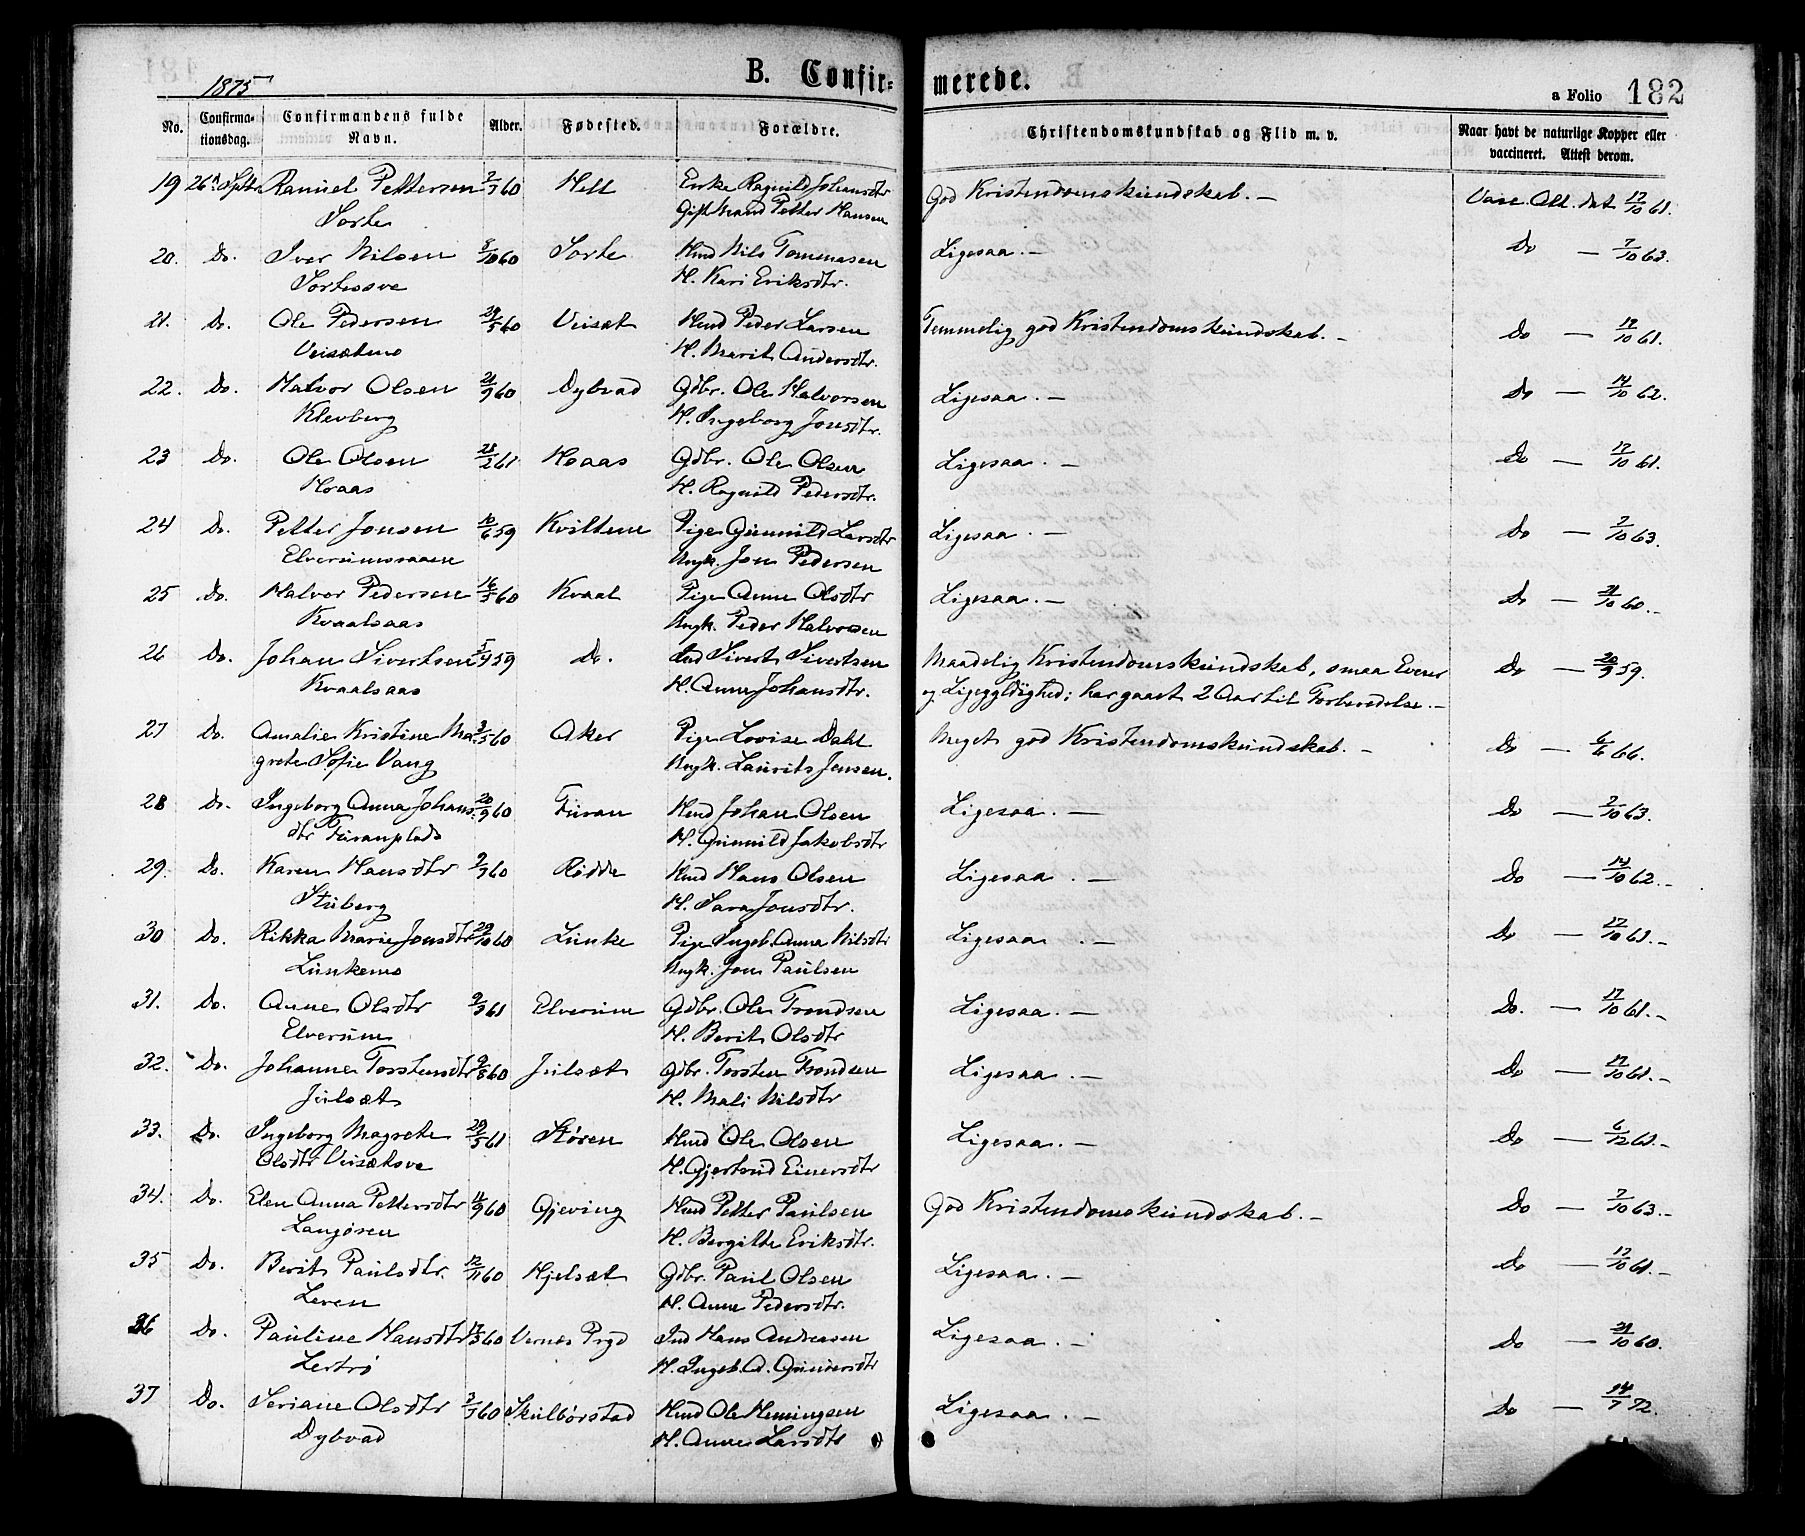 1875
B. Confirmerede.
a Folio 182
No. Confirmationsdag. Confirmandens fulde Navn. Alder. Fødested. Forældre. Christendomskundskab og Flid m. v. Naar havt de naturlige Kopper eller vaccineret. Attest derom.
19 26 Sptr. Pettersen 60 Hell Enke Ragnild Johansdtr God Kristendomskundskab. — Vacc. Att. dat. 17/10 61.
Sorte Gift Mand Petter Hansen
20. Do. Iver Nilsen 60 Sorte Hmd Nils Tommasen Ligesaa. — Do — 7/10 63.
H. Kari Eriksdtr.
21. Do. Ole Pedersen 29/5 60 Veisæt Hmd Peder Larsen Temmelig god Kristendomskundskab. — Do — 17/10 61.
H. Marit Andersdtr.
22. Do. Halvor Olsen 21/9 60 Dybvad Gdbr. Ole Halvorsen Ligesaa. — Do — 14/10 62.
Klevberg H. Ingeborg Jonsdtr.
23 Do. Ole Olsen 28/2 61 Hoaas Gdbr. Ole Olsen Ligesaa. — Do — 17/10 61.
Hoaas H. Ragnild Pedersdtr.
24 Do. Petter Jonsen 10/6 59 Pige Gunnild Larsdtr Ligesaa. — Do — 7/10 63.
Elverumsaaen Ungk. Jon Pedersen
25 Do. Halvor Pedersen 60 Kvaal Pige Anne Olsdtr Ligesaa. — Do — 21/10 60. —
Kvaalsaas Ungk. Peder Halvorsen
26 Do. Johan Sivertsen 59 Do. Ind Sivert Sivertsen Maadelig Kristendomskundskab, smaa Evner Do — 20/9 59.
Kvaalsaas H. Anne Johansdtr. og Ligegyldighed; har gaaet 2 Aar til Forberedelse. —
27 Do. Amalie Kristine Ma- 3/5 60 Aker Pige Lovise Dahl Meget god Kristendomskundskab. — Do — 6/6 66.
grete Sofie Vang Ungk. Laurits Jensen.
28 Do. Ingeborg Anna Johans- 20/9 60 Furan Hmd Johan Olsen Ligesaa. — Do — 7/10 63.
dtr Furanplads H. Gunnild Jakobsdtr
29. Do. Karen Hansdtr 60 Rødde Hmd Hans Olsen Ligesaa. — Do — 14/10 62. —
Stuberg H. Sara Jonsdtr.
30 Do. Rikka Marie Jonsdtr 29/10 60 Lunke Pige Ingeb. Anna Nilsdtr Ligesaa. — Do — 17/10 61. —
Ungk. Jon Paulsen
31. Do. Anne Olsdtr 61 Elverum Gdbr. Ole Trondsen Ligesaa. — Do. — 17/10 61. —
Elverum H. Berit Olsdtr
32. Do. Johanne Torstensdtr 60 Julsæt Gdbr. Torsten Trondsen Ligesaa. — Do — 17/10 61. —
Julsæt H. Mali Nilsdtr
33. Do. Ingeborg Magrete 29/5 61 Støren Hmd Ole Olsen Ligesaa. — Do — 6/12 61. —
Olsdtr H. Gjertrud Einersdtr
34. Do. Elen Anna Pettersdtr 60 Gjeving Hmd Petter Paulsen God Kristendomskundskab. — Do — 7/10 63. —
Langøren H. Bergitte Eriksdtr.
35 Do. Berit Paulsdtr. 12/11 60 Hjelsæt Gdbr. Paul Olsen Ligesaa. — Do — 17/10 61. —
Leren H. Anne Pedersdtr.
36 Do. Pauline Hansdtr 60 Vernes Pryd Ind Hans Andreasen Ligesaa. — Do — 21/10 60.
Lertrø H. Ingeb. A. Gunnersdtr
37 Do. Seriane Olsdtr 60 Skulbørstad Hmd Ole Hemingsen Ligesaa. — Do — 24/7 72.
Dybvad H. Anne Larsdtr